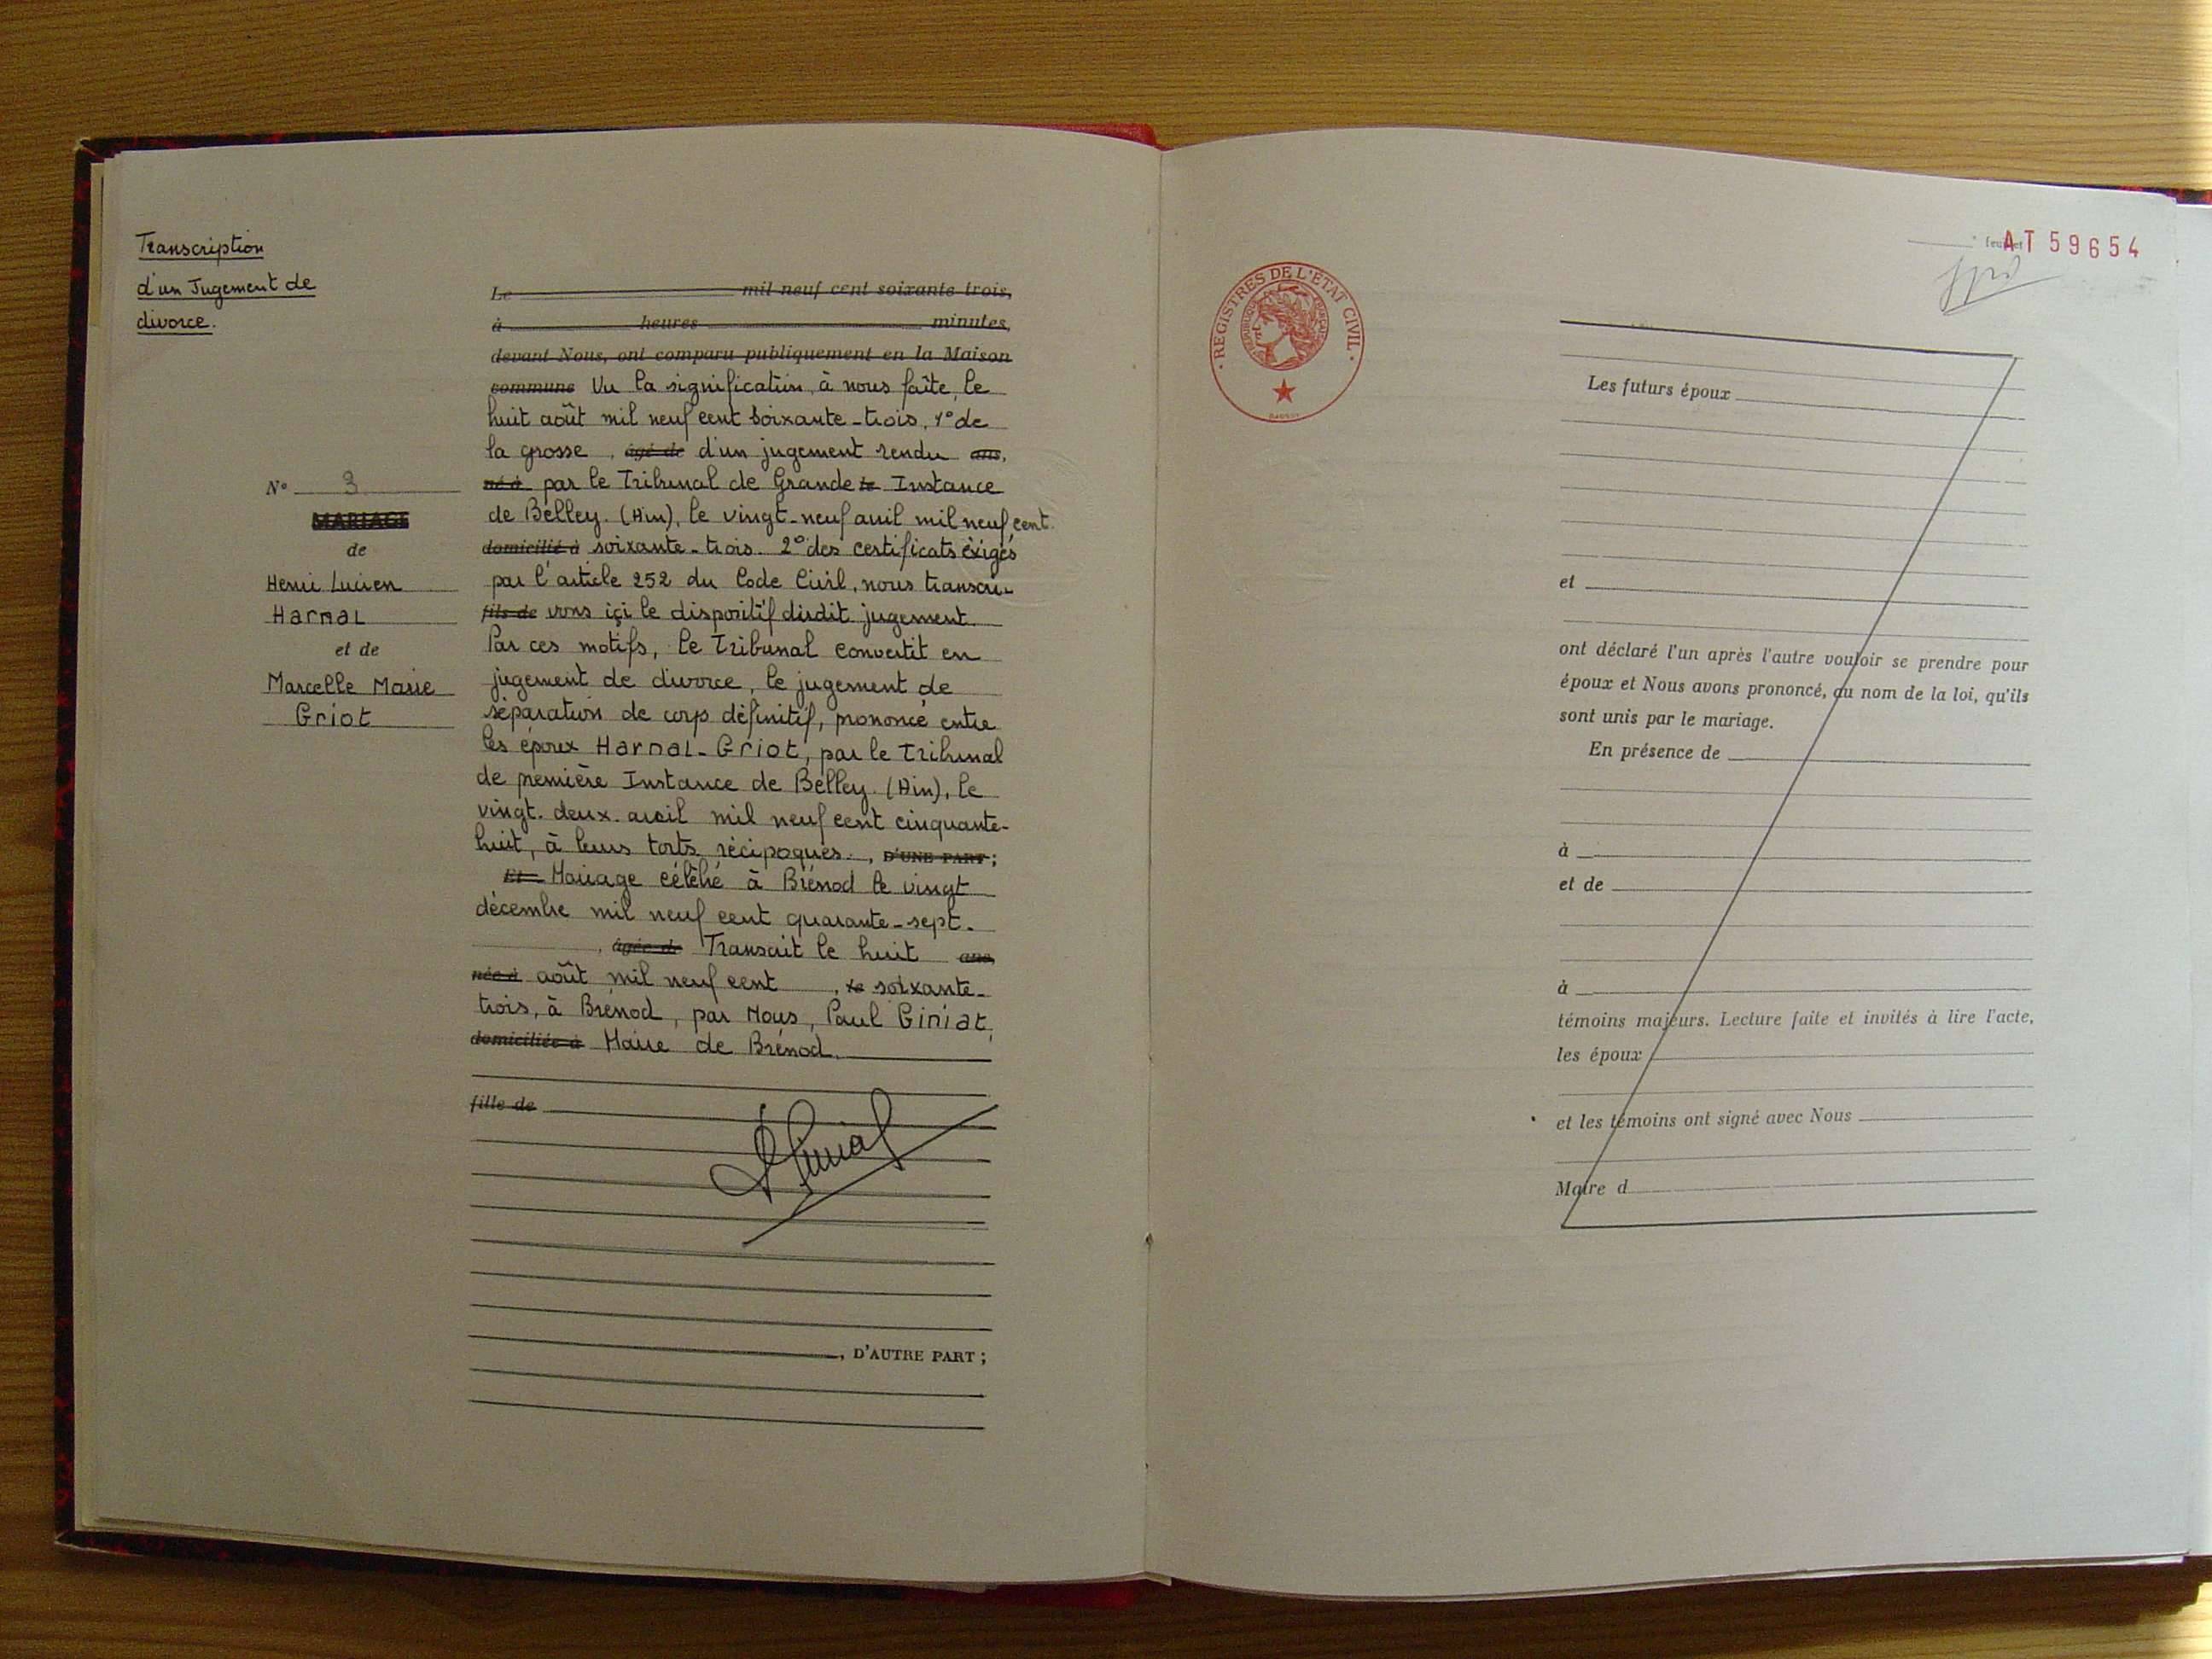 Transcription
d'un Jugement de
divorce.
N° 3
MARIAGE
de
Henri Lucien
Harnal
et de
Marcelle Marie
Griot
Le mil neuf cent soixante-trois,
à heures minutes,
devant Nous, ont comparu publiquement en la Maison
commune Vu la signification, à nous faîte, le
huit août mil neuf cent soixante-trois, 1° de
la grosse , âgé de d'un jugement rendu ans,
né à par le Tribunal de Grande le Instance
de Belley. (Ain), le vingt-neuf avril mil neuf cent.
domicilié à soixante-trois. 2° des certificats éxigés
par l'article 252 du Code Civil, nous transcri-
fils de vons içi le dispositif dudit jugement.
Par ces motifs, le Tribunal convertit en
jugement de divorce, le jugement de
séparation de corp définitif, prononcé entre
les époux Harnal-Griot, par le Tribunal
de première Instance de Belley. (Ain), le
vingt-deux avril mil neuf cent cinquante-
huit, à leurs torts récipoques. , D'UNE PART ;
Et Mariage célébré à Brénod le vingt
décembre mil neuf cent quarante-sept.
, âgée de Transcrit le huit ans,
née à août mil neuf cent , le soixante-
trois, à Brénod, par Nous, Paul Giniat,
domiciliée à Maire de Brénod.
fille de
P Giniat
, D'AUTRE PART ;
REGISTRES DE L'ÉTAT CIVIL
RÉPUBLIQUE FRANÇAISE
feuillet
AT 59654
Les futurs époux
et
ont déclaré l'un après l'autre vouloir se prendre pour
époux et Nous avons prononcé, au nom de la loi, qu'ils
sont unis par le mariage.
En présence de
à
et de
à
témoins majeurs. Lecture faite et invités à lire l'acte,
les époux
et les témoins ont signé avec Nous
Maire d